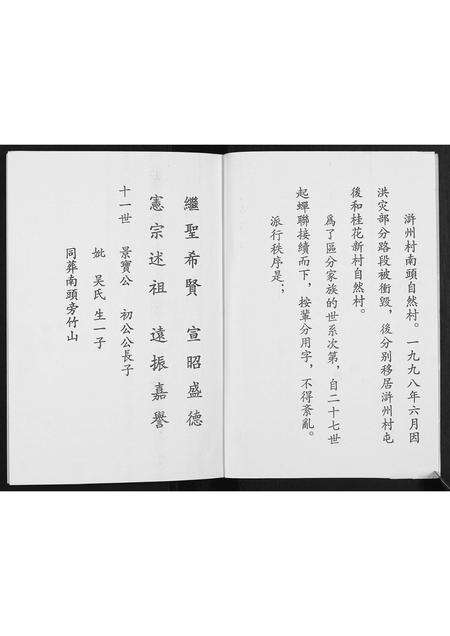 滸州村南頭自然村。一九九八年六月因
洪灾部分路段被衝毀，後分别移居滸州村屯
後和桂花新村自然村。
爲了區分家族的世系次第，自二十七世
起蟬聯接續而下，按輩分用字，不得紊亂。
派行秩序是：
繼聖希賢　宣昭盛德
憲宗述祖　遠振嘉譽
十一世　景寶公　初公公長子
妣　吴氏　生一子
同葬南頭旁竹山